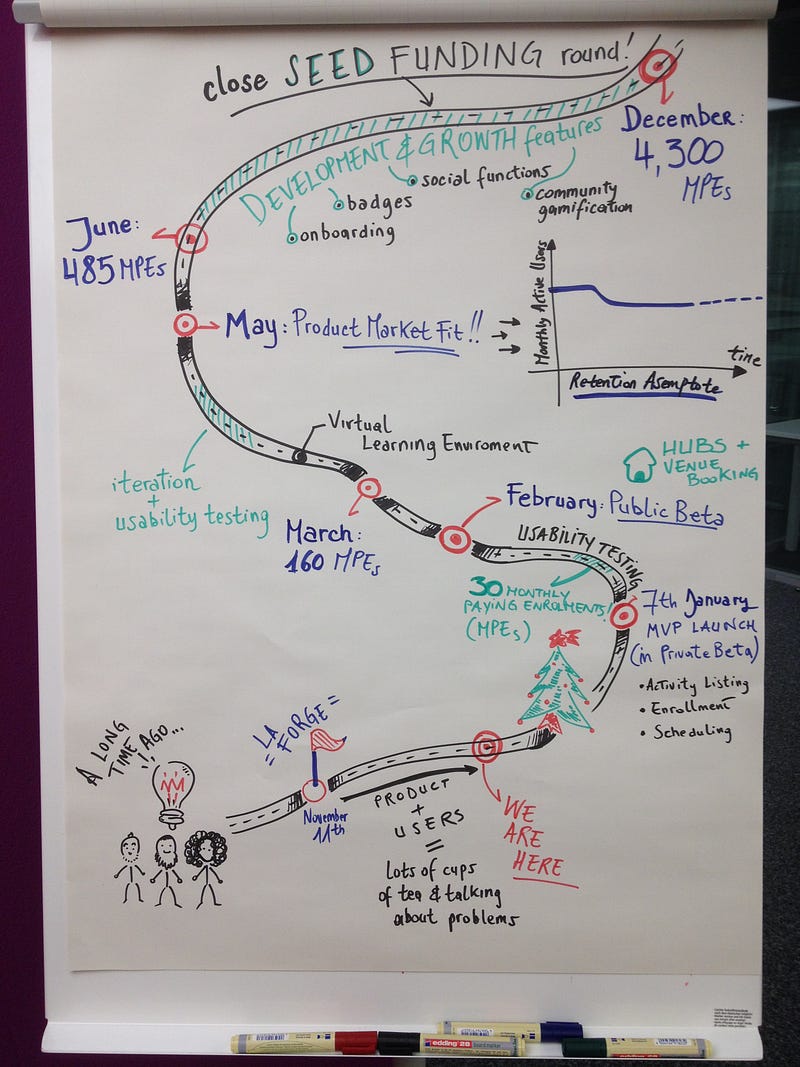 close SEED FUNDING round!
December:
4,300
MPEs
DEVELOPMENT & GROWTH features
social functions
badges
onboarding
community
gamification
June:
485 MPEs
May: Product Market Fit!!
Monthly Active Users
time
Retention Asemptote
Virtual
Learning Enviroment
iteration
+
usability testing
HUBS +
VENUE
BOOKING
February: Public Beta
March:
160 MPEs
USABILITY TESTING
30 MONTHLY
PAYING ENROLMENTS!
(MPEs)
7th January
MVP LAUNCH
(in Private Beta)
• Activity Listing
• Enrollment
• Scheduling
A LONG
TIME AGO...
LA
= FORGE =
November
11th
PRODUCT
+
USERS
=
lots of cups
of tea & talking
about problems
WE
ARE
HERE
edding 28